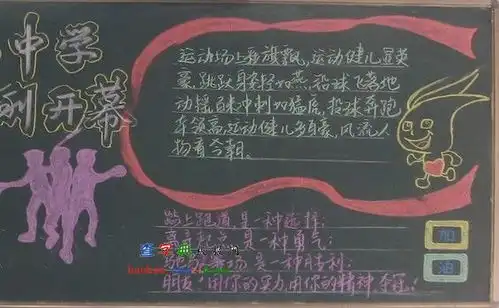 中学
利开幕
运动场上彩旗飘,运动健儿显英
豪,跳跃身轻如燕,投球飞落地
动摇,起来冲刺如猛虎,投球奔跑
车领高,运动健儿多自豪,风流人
物看今朝。
踏上跑道,是一种选择;
是一种勇气;
是一种胜利;
朋友!用你的实力,用你的精神
加
油